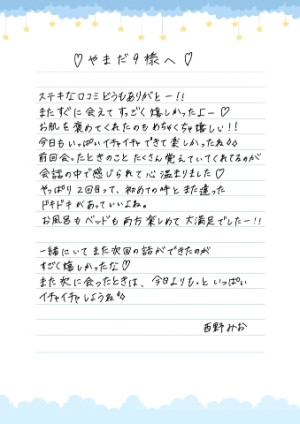 ♡やまだ9様へ♡
ステキな口コミどうもありがとー!!
またすぐに会えてすっごく嬉しかったよー♡
お肌を褒めてくれたのもめちゃくちゃ嬉しい!!
今日もいっぱいイチャイチャできて楽しかったね
前回会ったときのことたくさん覚えていてくれてるのが
会話の中で感じられて心温まりました♡
やっぱり2回目って、初めての時とまた違った
ドキドキがあっていいよね。
お風呂もベッドも両方楽しめて大満足でしたー!!
一緒にいてまた次回の話ができたのが
すごく嬉しかったな♡
また次に会ったときは、今日よりもっといっぱい
イチャイチャしようね
西野みお